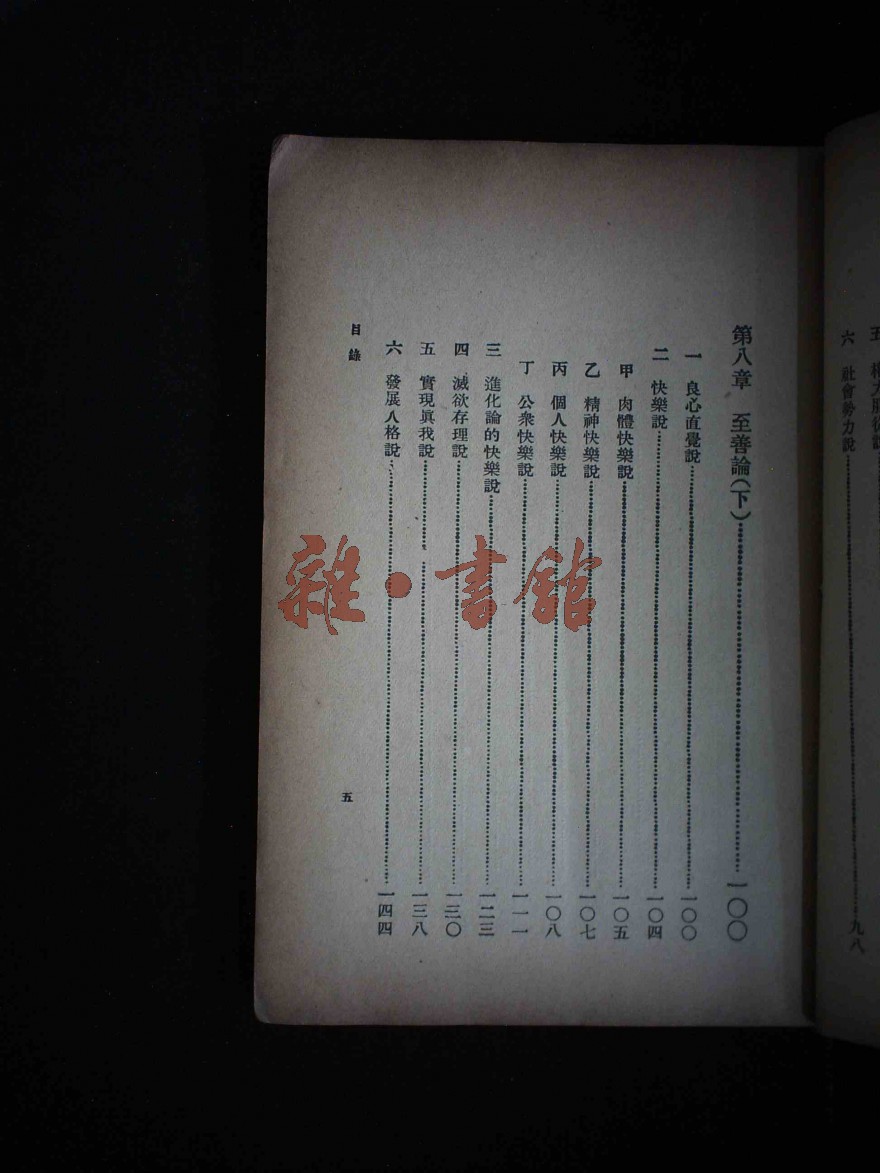 六 社會勢力說……九八
第八章 至善論(下)……一〇〇
一 良心直覺說……一〇〇
二 快樂說……一〇四
甲 肉體快樂說……一〇五
乙 精神快樂說……一〇七
丙 個人快樂說……一〇八
丁 公衆快樂說……一一一
三 進化論的快樂說……一二三
四 滅欲存理說……一三〇
五 實現眞我說……一三八
六 發展人格說……一四四
目錄
五
雜·書館